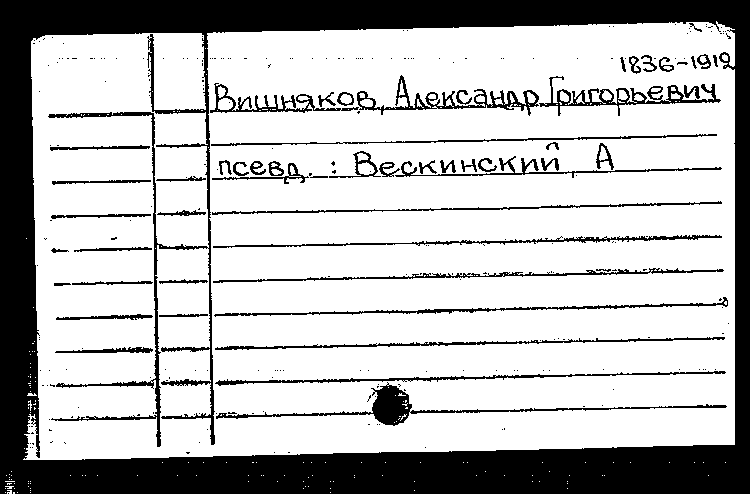 1836-1912
Вишняков, Александр Григорьевич
псевд. : Вескинский, А